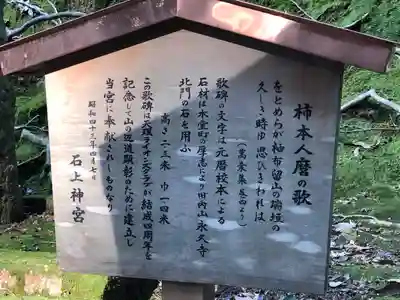 柿本人麿の歌
をとめらが袖布留山の瑞垣の
久しき時ゆ思ひきわれは
(萬葉集巻四より)
歌碑の文字は元暦校本による
石材は木堂町の厚志により田内山永久寺
北門の石を用ふ
高さ二三米 巾一四米
この歌碑は天理ライオンズクラブが結成四周年を
記念して山の辺道顕彰のために建立し
当宮に奉献されしものなり
昭和四十三年四月七日
石上神宮